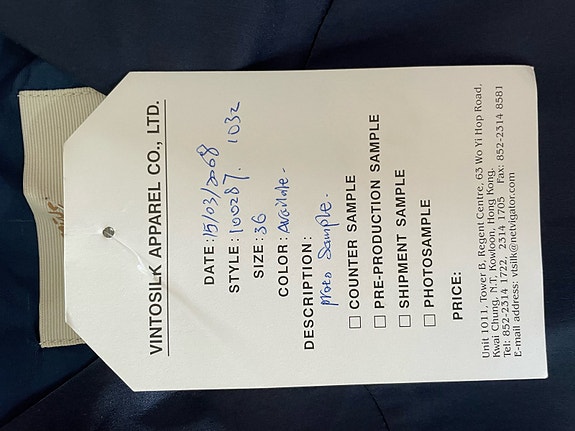 VINTOSILK APPAREL CO., LTD.
DATE: 15/03/2008
STYLE: 100287. 1032
SIZE: 36
COLOR: Available.
DESCRIPTION:
Proto Sample.
☐ COUNTER SAMPLE
☐ PRE-PRODUCTION SAMPLE
☐ SHIPMENT SAMPLE
☐ PHOTOSAMPLE
PRICE:
Unit 1011, Tower B, Regent Centre, 63 Wo Yi Hop Road,
Kwai Chung, N.T. Kowloon, Hong Kong.
Tel: 852-2314 1722, 2314 1705 Fax: 852-2314 8581
E-mail address: vtsilk@netvigator.com